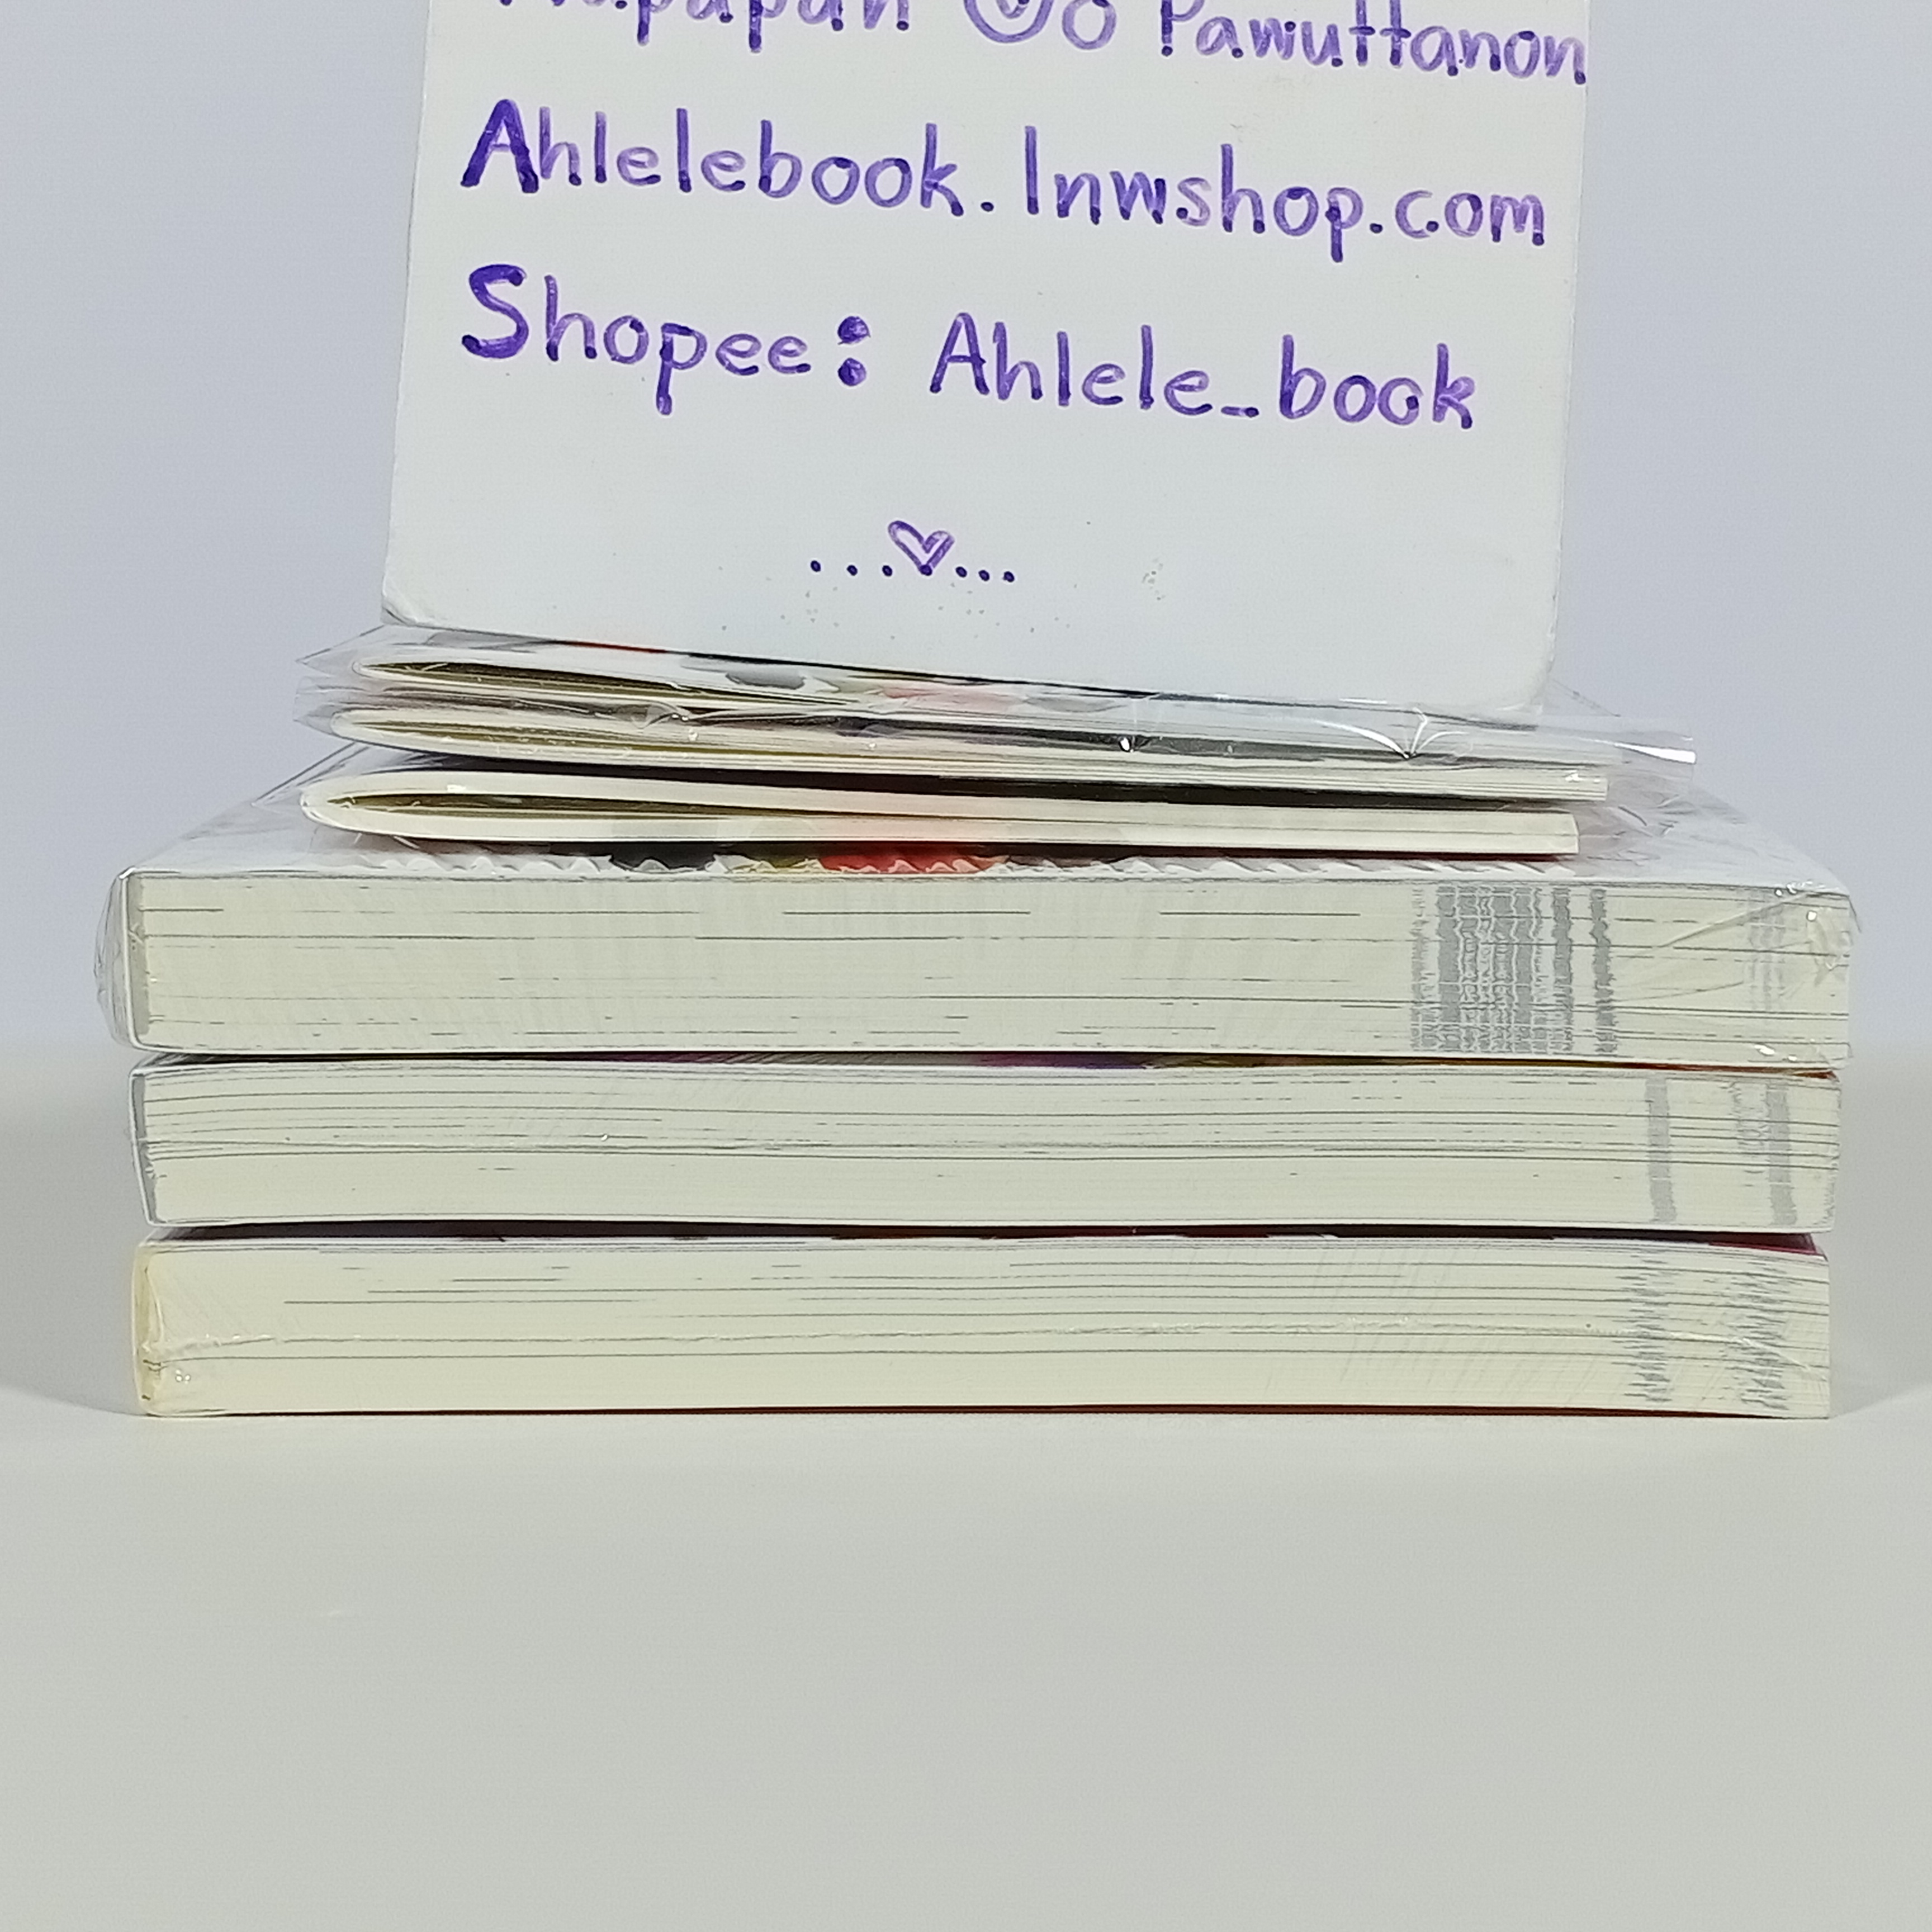 Pawuttanon
Ahlelebook.lnwshop.com
Shopee: Ahlele_book